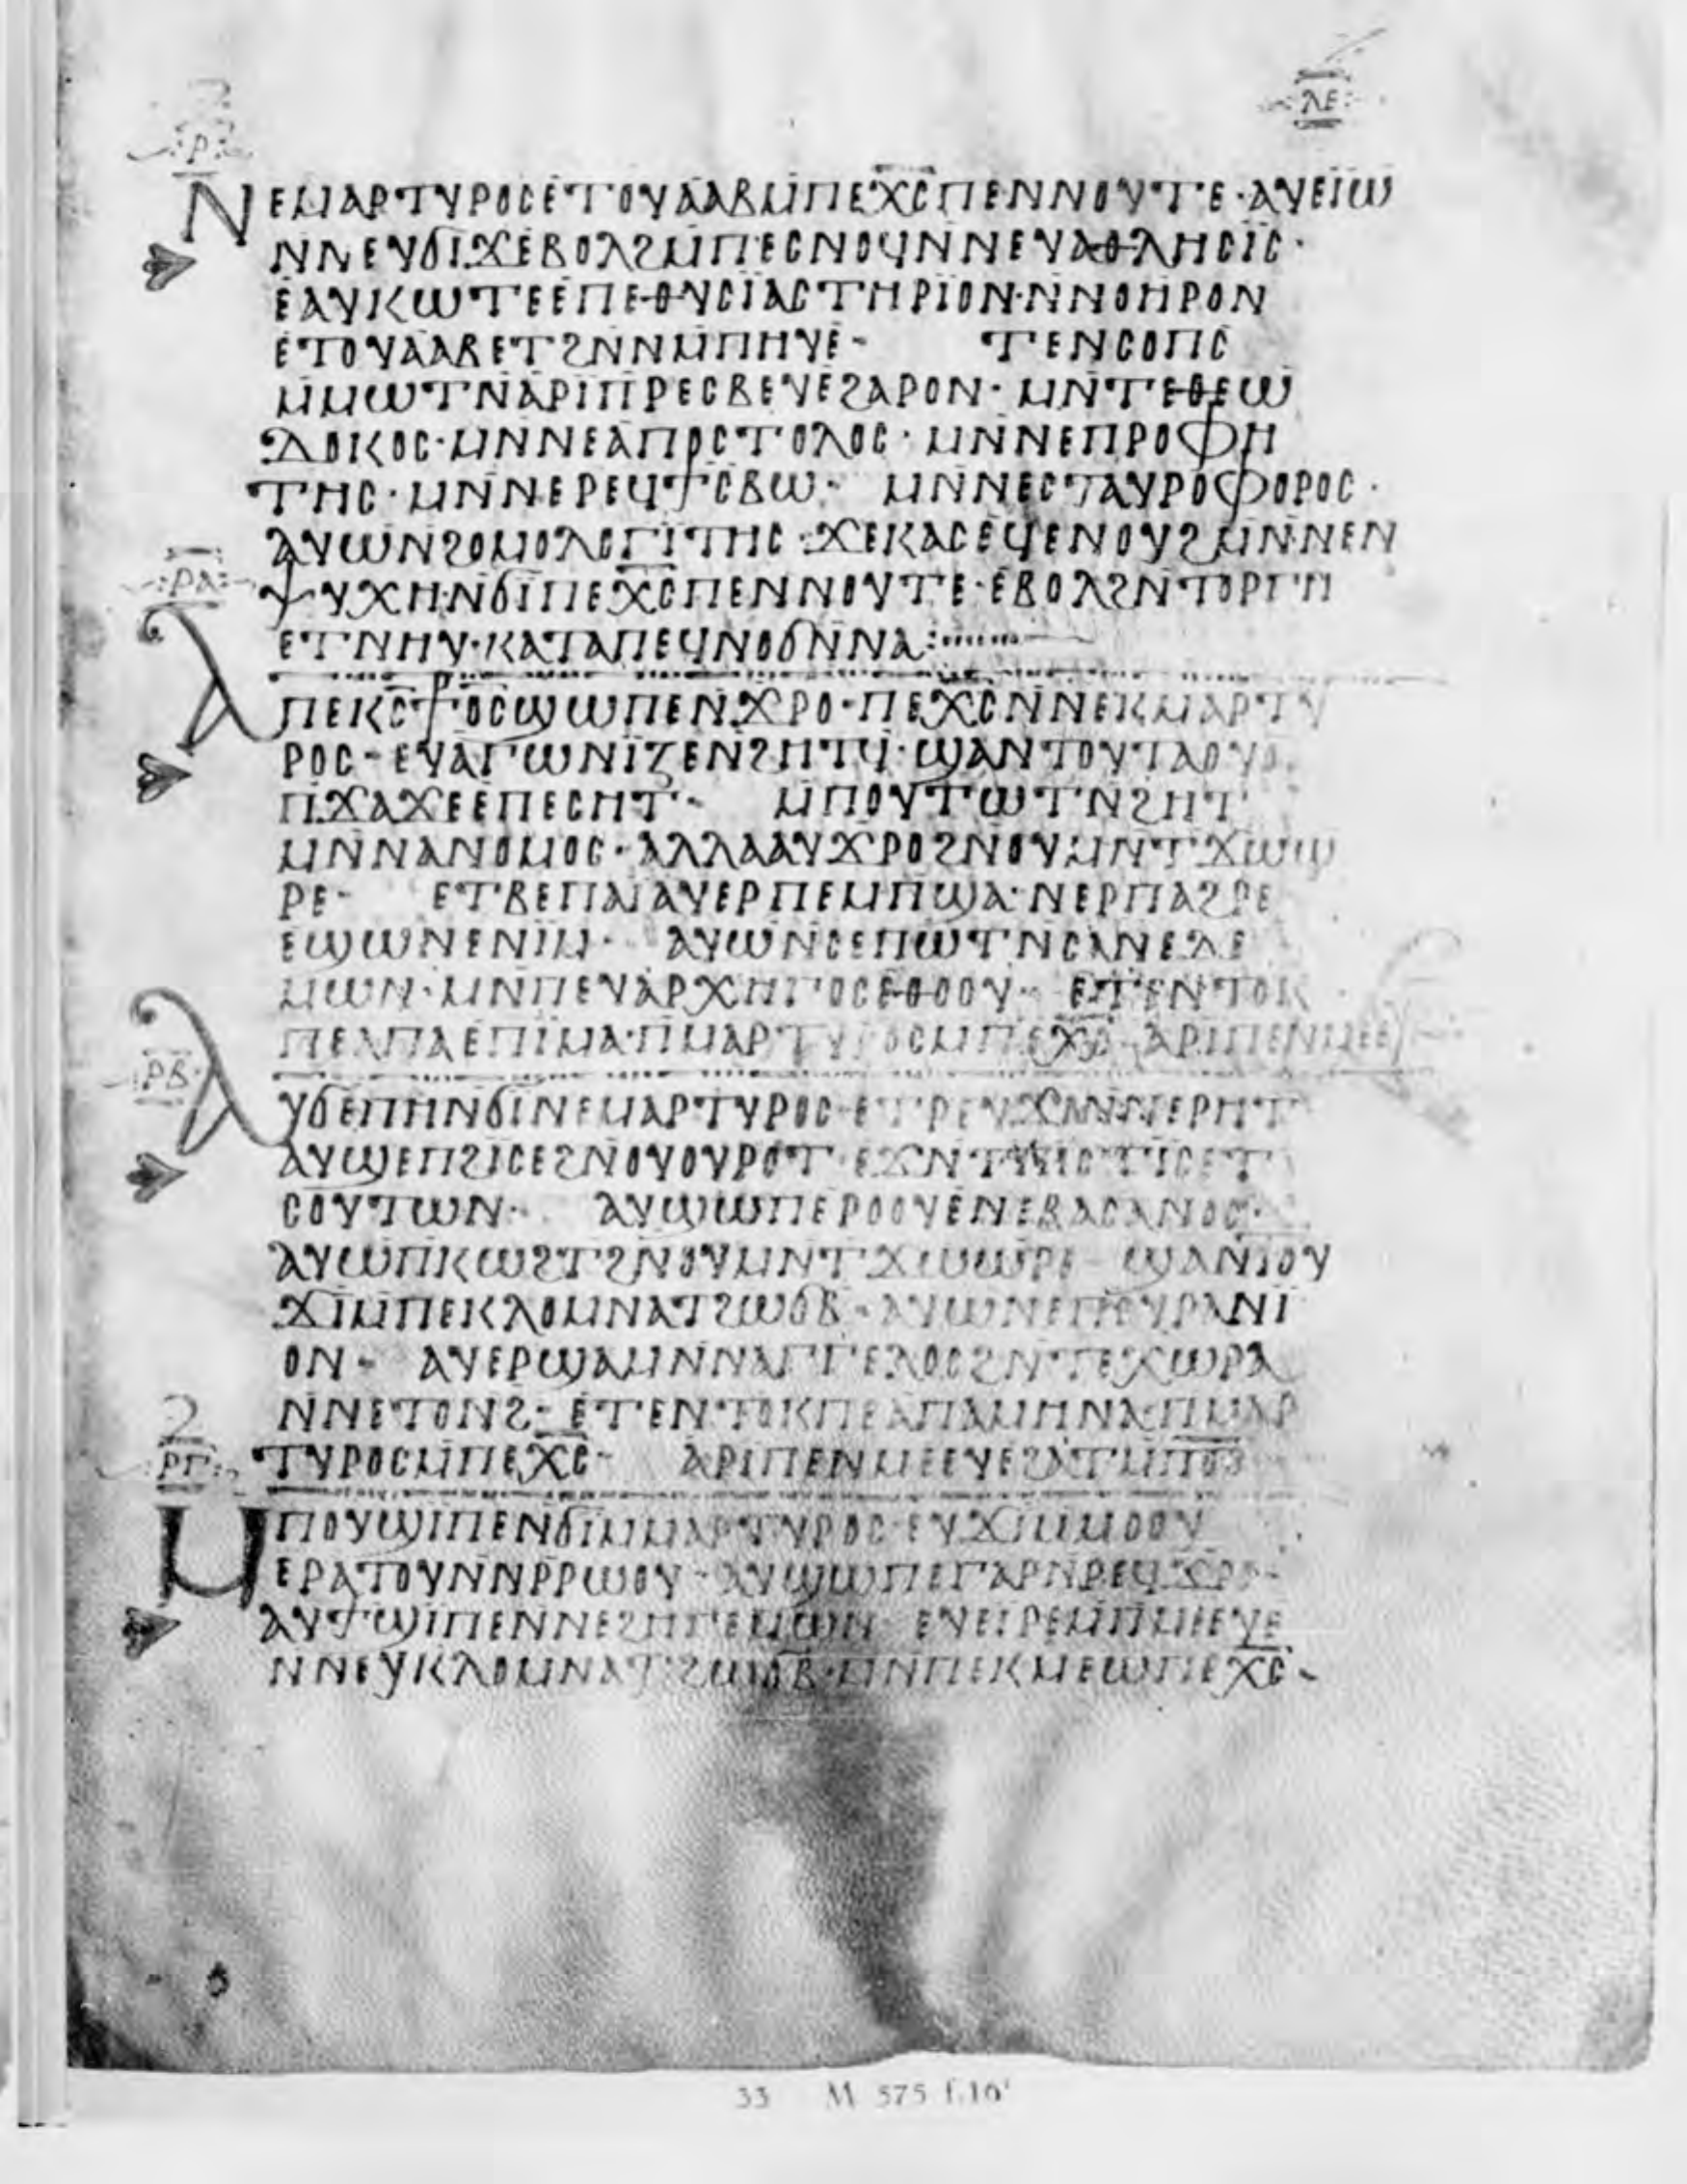 ⲗⲉ
ⲣ
ⲛⲉⲙⲁⲣⲧⲩⲣⲟⲥⲉⲧⲟⲩⲁⲁⲃⲙⲡⲉⲭⲥⲡⲉⲛⲛⲟⲩⲧⲉ· ⲁⲩⲉⲓⲱ
ⲛⲛⲉⲩϭⲓϫⲉⲃⲟⲗϩⲙⲡⲉⲥⲛⲟϥⲛⲛⲉⲩⲁⲑⲗⲏⲥⲓⲥ·
ⲉⲁⲩⲕⲱⲧⲉⲉⲡⲉⲑⲩⲥⲓⲁⲥⲧⲏⲣⲓⲟⲛ·ⲛⲛⲟⲏⲣⲟⲛ
ⲉⲧⲟⲩⲁⲁⲃⲉⲧϩⲛⲛⲙⲡⲏⲩⲉ- ⲧⲉⲛⲥⲟⲡⲥ
ⲙⲙⲱⲧⲛⲁⲣⲓⲡⲣⲉⲥⲃⲉⲩⲉϩⲁⲣⲟⲛ· ⲙⲛⲧⲉⲑⲉⲱ
ⲇⲟⲕⲟⲥ·ⲙⲛⲛⲉⲁⲡⲟⲥⲧⲟⲗⲟⲥ· ⲙⲛⲛⲉⲡⲣⲟⲫⲏ
ⲧⲏⲥ·ⲙⲛⲛⲉⲣⲉϥϯⲥⲃⲱ- ⲙⲛⲛⲉⲥⲧⲁⲩⲣⲟⲫⲟⲣⲟⲥ·
ⲁⲩⲱⲛϩⲟⲙⲟⲗⲟⲅⲓⲧⲏⲥ·ϫⲉⲕⲁⲥⲉϥⲉⲛⲟⲩϩⲙⲛⲛⲉⲛ
ⲣⲁ
ⲯⲩⲭⲏ·ⲛϭⲓⲡⲉⲭⲥⲡⲉⲛⲛⲟⲩⲧⲉ·ⲉⲃⲟⲗϩⲛⲧⲟⲣⲅⲏ
ⲉⲧⲛⲏⲩ·ⲕⲁⲧⲁⲡⲉϥⲛⲟϭⲛⲛⲁ:
ⲁⲡⲉⲕⲥϯⲟⲥϣⲱⲡⲉⲛϫⲣⲟ·ⲡⲉⲭⲥⲛⲛⲉⲕⲙⲁⲣⲧⲩ
ⲣⲟⲥ-ⲉⲩⲁⲅⲱⲛⲓⲍⲉⲛϩⲏⲧϥ·ϣⲁⲛⲧⲟⲩⲧⲁⲟⲩⲟ
ⲡϫⲁϫⲉⲉⲡⲉⲥⲏⲧ- ⲙⲡⲟⲩⲧⲱⲧⲛϩⲏⲧ
ⲙⲛⲛⲁⲛⲟⲙⲟⲥ·ⲁⲗⲗⲁⲁⲩϫⲣⲟϩⲛⲟⲩⲙⲛⲧϫⲱⲱ
ⲣⲉ- ⲉⲧⲃⲉⲡⲁⲓⲁⲩⲉⲣⲡⲉⲙⲡϣⲁ·ⲛⲉⲣⲡⲁϩⲣⲉ
ⲉϣⲱⲛⲉⲛⲓⲙ· ⲁⲩⲱⲛⲥⲉⲡⲱⲧⲛⲥⲁⲛⲉⲇⲉ
ⲙⲱⲛ·ⲙⲛⲡⲉⲩⲁⲣⲭⲏⲅⲟⲥⲉⲑⲟⲟⲩ· ⲉⲧⲉⲛⲧⲟⲕ
ⲡⲉⲁⲡⲁⲉⲡⲓⲙⲁ·ⲡⲙⲁⲣⲧⲩⲣⲟⲥⲙⲡⲉⲭⲥ-ⲁⲣⲓⲡⲉⲛⲙⲉⲉ
ⲣⲃ
ⲁⲩϭⲉⲡⲏⲛϭⲓⲛⲉⲙⲁⲣⲧⲩⲣⲟⲥ·ⲉⲧⲣⲉⲩϫⲙⲛⲛⲉⲣⲏⲧ
ⲁⲩϣⲉⲡϩⲓⲥⲉϩⲛⲟⲩⲟⲩⲣⲟⲧ·ⲉϫⲛⲧⲡⲓⲥⲧⲓⲥⲉⲧ
ⲥⲟⲩⲧⲱⲛ· ⲁⲩϣⲱⲡⲉⲣⲟⲟⲩⲉⲛⲉⲃⲁⲥⲁⲛⲟⲥ·
ⲁⲩⲱⲡⲕⲱϩⲧϩⲛⲟⲩⲙⲛⲧϫⲱⲱⲣⲉ- ϣⲁⲛⲧⲟⲩ
ϫⲓⲙⲡⲉⲕⲗⲟⲙⲛⲁⲧϩⲱϭⲃ-ⲁⲩⲱⲛⲉⲡⲟⲩⲣⲁⲛⲓ
ⲟⲛ- ⲁⲩⲉⲣϣⲁⲙⲛⲛⲁⲅⲅⲉⲗⲟⲥϩⲛⲧⲉⲭⲱⲣⲁ
ⲛⲛⲉⲧⲟⲛϩ-ⲉⲧⲉⲛⲧⲟⲕⲡⲉⲁⲡⲁⲙⲏⲛⲁ·ⲡⲙⲁⲣ
ⲣⲅ
ⲧⲩⲣⲟⲥⲙⲡⲉⲭⲥ- ⲁⲣⲓⲡⲉⲛⲙⲉⲉⲩⲉϩⲁⲧⲙⲡⲟⲥ
ⲙⲡⲟⲩϣⲓⲡⲉⲛϭⲓⲙⲙⲁⲣⲧⲩⲣⲟⲥ·ⲉⲩϫⲓⲙⲙⲟⲟⲩ
ⲉⲣⲁⲧⲟⲩⲛⲛⲣⲣⲱⲟⲩ-ⲁⲩϣⲱⲡⲉⲅⲁⲣⲛⲣⲉϥϫⲣⲟ-
ⲁⲩϯϣⲓⲡⲉⲛⲛⲉϩⲏⲅⲉⲙⲱⲛ· ⲉⲩⲉⲓⲣⲉⲙⲡⲙⲉⲉⲩⲉ
ⲛⲛⲉⲩⲕⲗⲟⲙⲛⲁⲧϩⲱϭⲃ·ⲙⲛⲡⲉⲕⲙⲉⲱⲡⲉⲭⲥ-
33 M 575 f.16ʳ